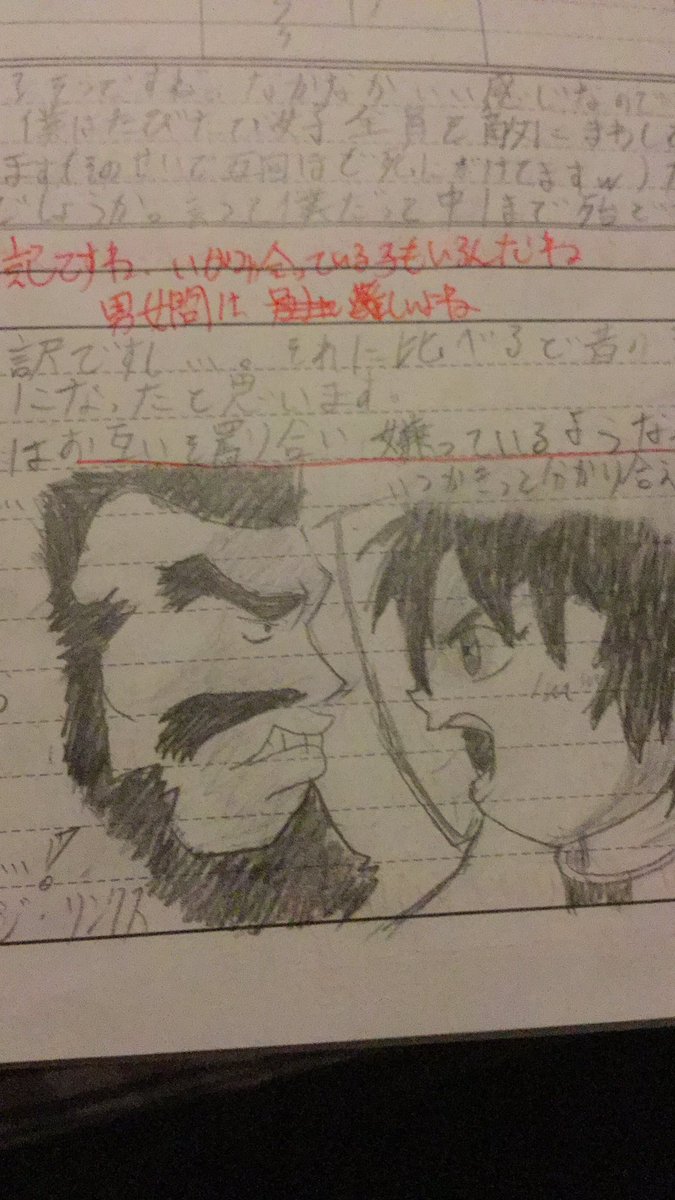 るそうですね。なかなかいい感じなので
僕はたびたび女子全員を敵にまわして
ます(そのせいで五回ほど死にかけてますw)
でしょうか。言って僕だって中1まで
ですね、いがみ合っている子もいるんだね
男女間は 難しいよね
訳ですし…。それに比べると昔の
になったと思います。
はお互いを罵り合い 嫌っているような
いつかきっと分かり合え
…!
ジ・リンクス